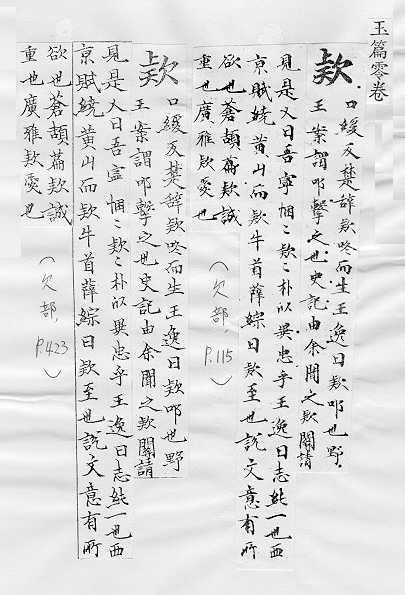 玉篇零卷
欵
口緩反楚辭欵吟而生王逸曰欵叩也野
王案謂叩擊之也史記由余聞之欵關請
見是又曰吾寧悃〻欵〻朴以異忠乎王逸曰志純一也西
京賦繞黃山而欵牛首薛綜曰欵至也說文意有所
欲也蒼頡篇欵誠
重也廣雅欵愛也
(欠部, P.115)
欵
口緩反楚辭欵吟而生王逸曰欵叩也野
王案謂叩擊之也史記由余聞之欵關請
見是又曰吾寧悃〻欵〻朴以異忠乎王逸曰志純一也西
京賦繞黃山而欵牛首薛綜曰欵至也說文意有所
欲也蒼頡篇欵誠
重也廣雅欵愛也
(欠部, P.423)